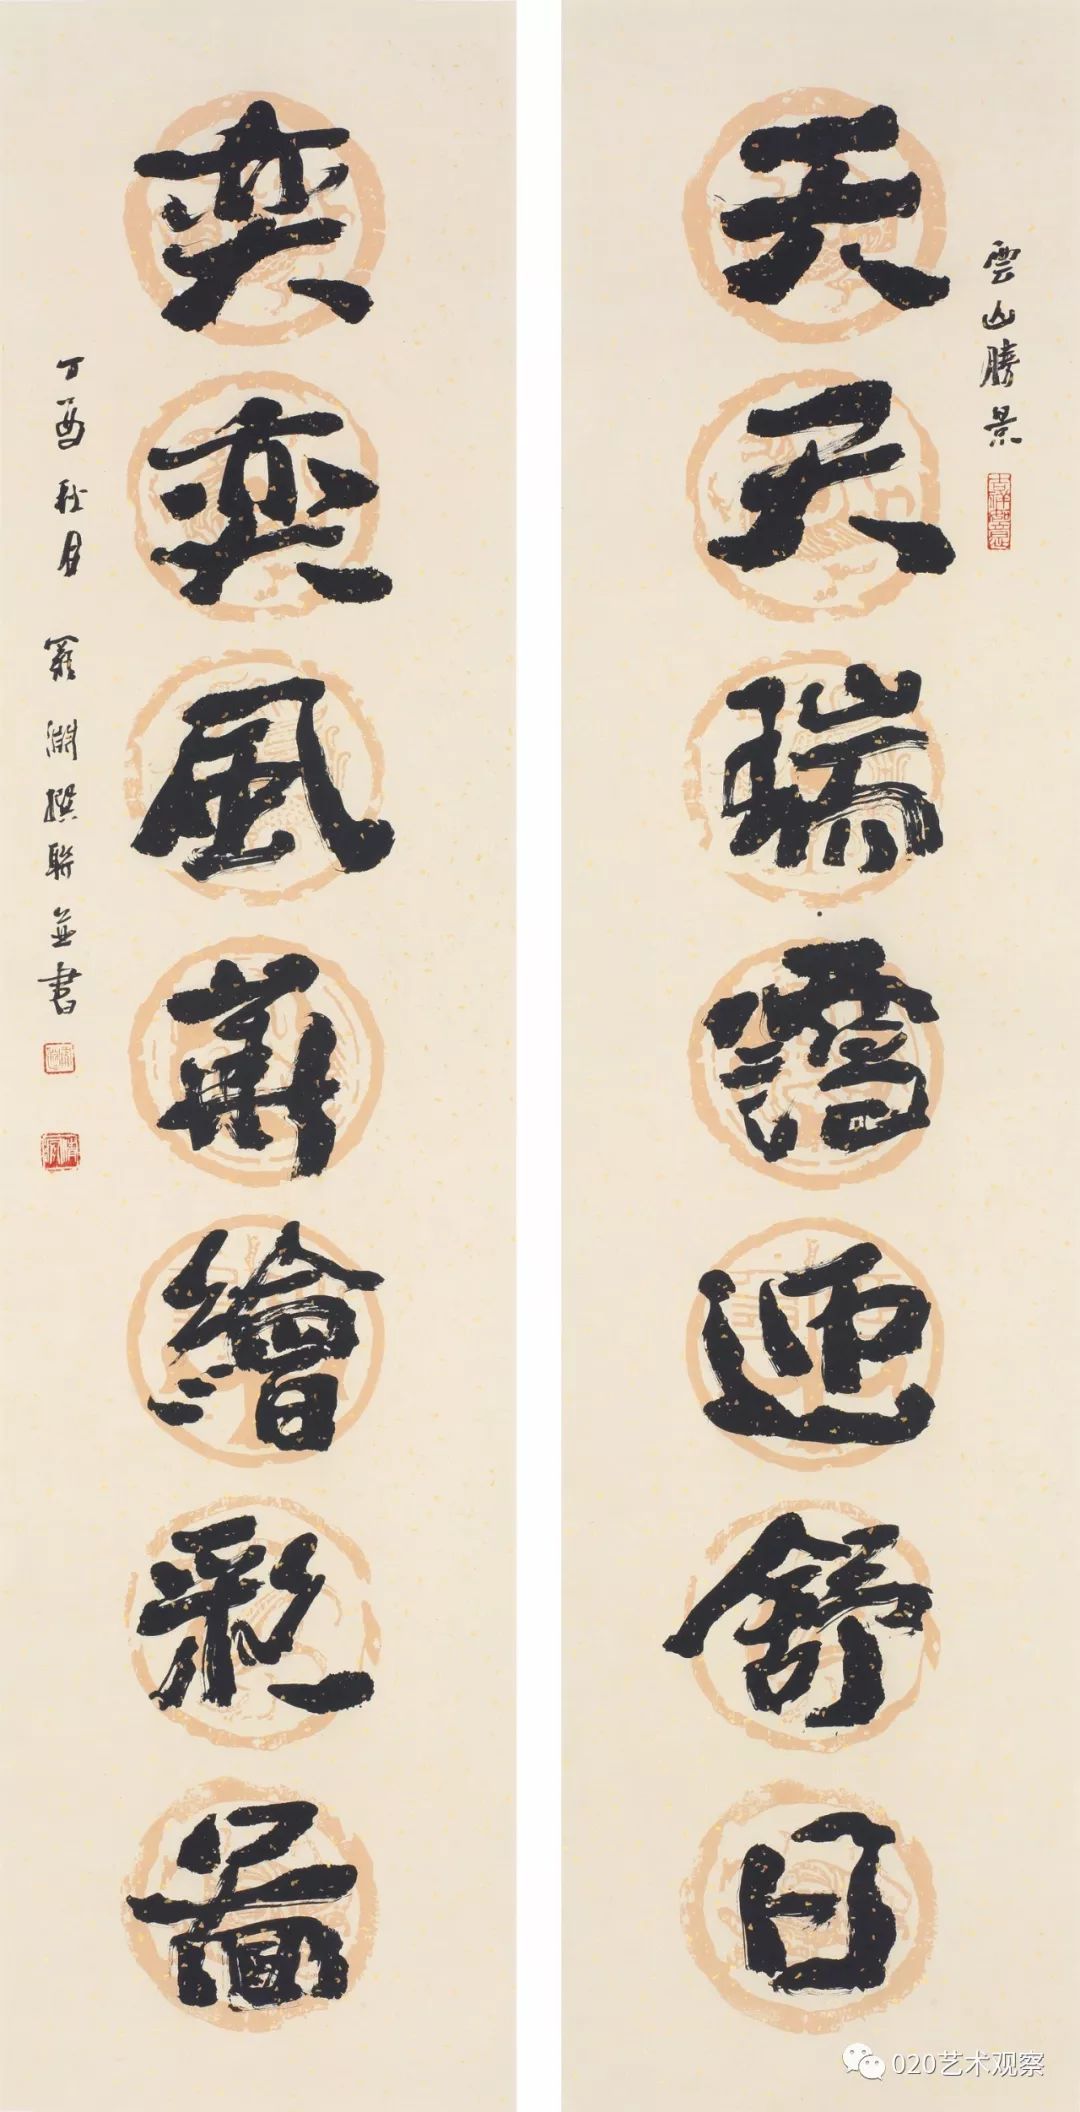 雲山勝景
天天瑞靄迎舒日
奕奕風華繪彩圖
丁酉秋月 羅 撰聯並書
020艺术观察